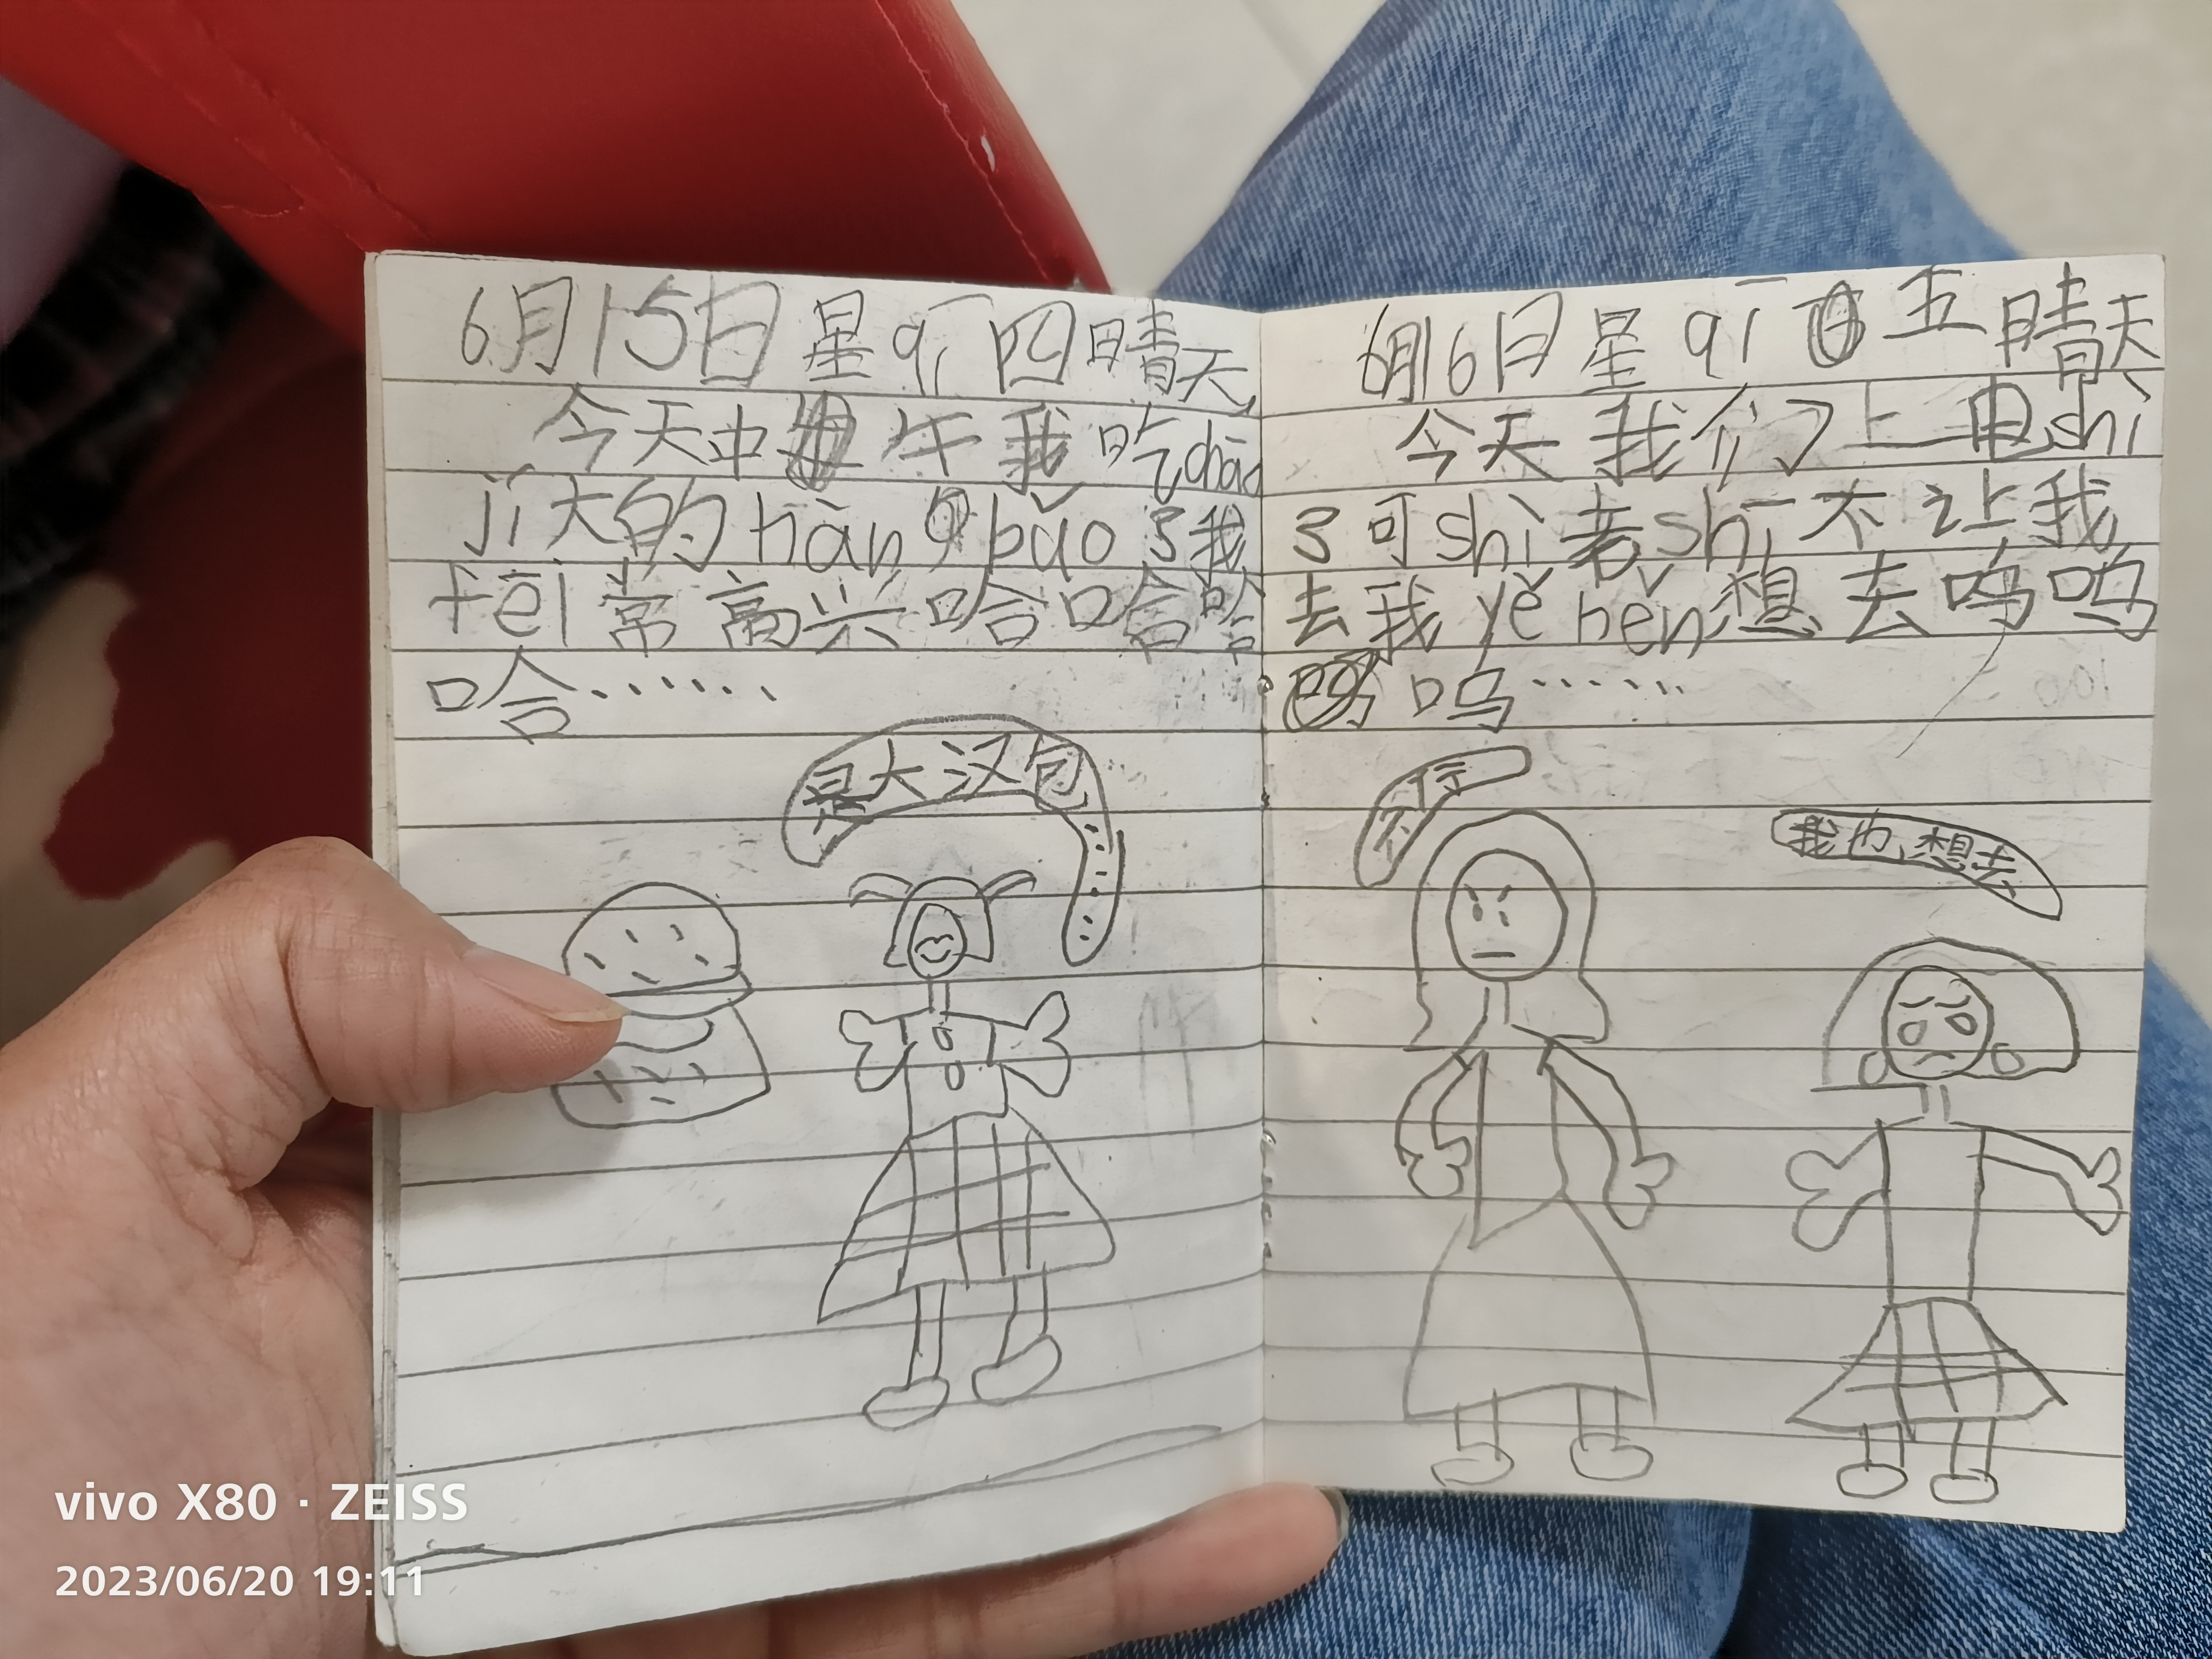 6月15日星qī四晴天
今天中午我吃chāo
jí大的hàn bǎo了我
fēi常高兴哈哈哈
哈……
是大汉包
……
6月16日星qī五晴天
今天我们上电shì
了可shì老shī不让我
去我yě hěn想去呜呜
呜……
不行
我也想去
vivo X80 · ZEISS
2023/06/20 19:11